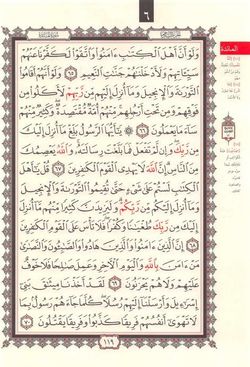 ٦
المائدة
وَلَوْ أَنَّ أَهْلَ ٱلْكِتَٰبِ ءَامَنُوا۟ وَٱتَّقَوْا۟ لَكَفَّرْنَا عَنْهُمْ
سَيِّـَٔاتِهِمْ وَلَأَدْخَلْنَٰهُمْ جَنَّٰتِ ٱلنَّعِيمِ ٦٥ وَلَوْ أَنَّهُمْ أَقَامُوا۟
ٱلتَّوْرَىٰةَ وَٱلْإِنجِيلَ وَمَآ أُنزِلَ إِلَيْهِم مِّن رَّبِّهِمْ لَأَكَلُوا۟ مِن
فَوْقِهِمْ وَمِن تَحْتِ أَرْجُلِهِم مِّنْهُمْ أُمَّةٌ مُّقْتَصِدَةٌ وَكَثِيرٌ مِّنْهُمْ
سَآءَ مَا يَعْمَلُونَ ٦٦ يَٰٓأَيُّهَا ٱلرَّسُولُ بَلِّغْ مَآ أُنزِلَ إِلَيْكَ
مِن رَّبِّكَ وَإِن لَّمْ تَفْعَلْ فَمَا بَلَّغْتَ رِسَالَتَهُۥ وَٱللَّهُ يَعْصِمُكَ
مِنَ ٱلنَّاسِ إِنَّ ٱللَّهَ لَا يَهْدِى ٱلْقَوْمَ ٱلْكَٰفِرِينَ ٦٧ قُلْ يَٰٓأَهْلَ
ٱلْكِتَٰبِ لَسْتُمْ عَلَىٰ شَىْءٍ حَتَّىٰ تُقِيمُوا۟ ٱلتَّوْرَىٰةَ وَٱلْإِنجِيلَ
وَمَآ أُنزِلَ إِلَيْكُم مِّن رَّبِّكُمْ وَلَيَزِيدَنَّ كَثِيرًا مِّنْهُم مَّآ أُنزِلَ
إِلَيْكَ مِن رَّبِّكَ طُغْيَٰنًا وَكُفْرًا فَلَا تَأْسَ عَلَى ٱلْقَوْمِ ٱلْكَٰفِرِينَ
٦٨ إِنَّ ٱلَّذِينَ ءَامَنُوا۟ وَٱلَّذِينَ هَادُوا۟ وَٱلصَّٰبِـُٔونَ وَٱلنَّصَٰرَىٰ
مَنْ ءَامَنَ بِٱللَّهِ وَٱلْيَوْمِ ٱلْءَاخِرِ وَعَمِلَ صَٰلِحًا فَلَا خَوْفٌ
عَلَيْهِمْ وَلَا هُمْ يَحْزَنُونَ ٦٩ لَقَدْ أَخَذْنَا مِيثَٰقَ بَنِىٓ
إِسْرَٰٓءِيلَ وَأَرْسَلْنَآ إِلَيْهِمْ رُسُلًا كُلَّمَا جَآءَهُمْ رَسُولٌۢ بِمَا
لَا تَهْوَىٰٓ أَنفُسُهُمْ فَرِيقًا كَذَّبُوا۟ وَفَرِيقًا يَقْتُلُونَ ٧٠
١١٩